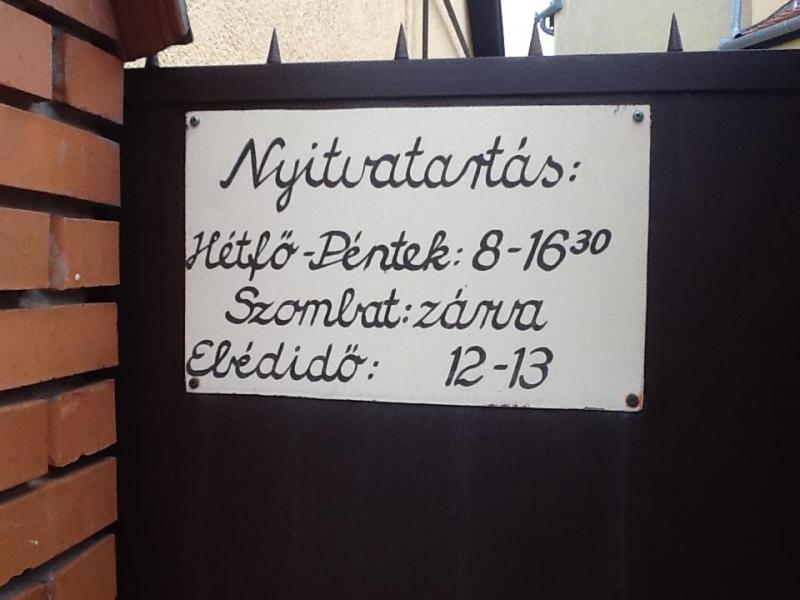 Nyitvatartás:
Hétfő-Péntek: 8-16³⁰
Szombat: zárva
Ebédidő: 12-13